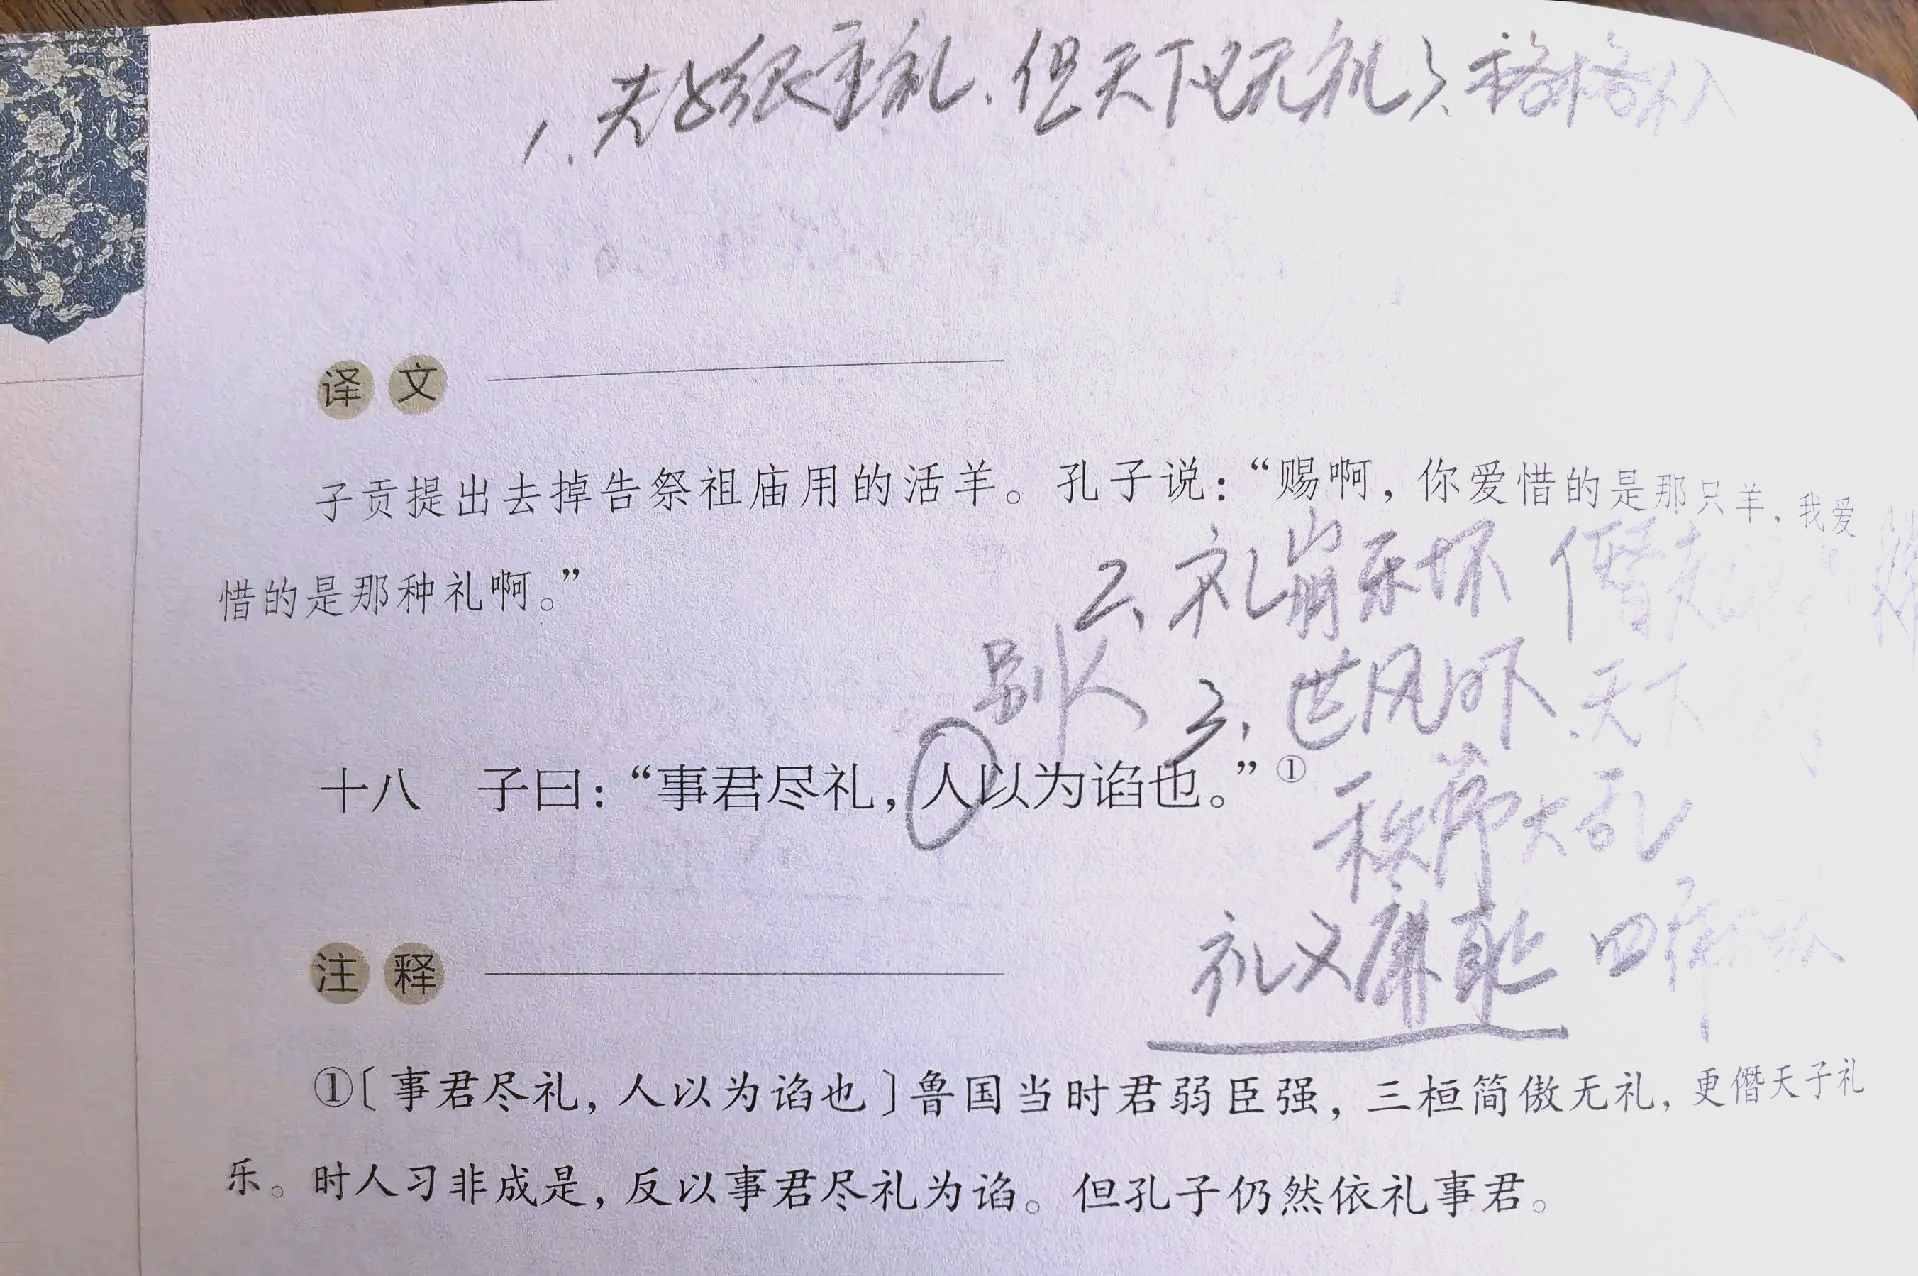 1、夫子很重礼、但天下已无礼了、格格不入
译文
子贡提出去掉告祭祖庙用的活羊。孔子说：“赐啊，你爱惜的是那只羊，我爱
惜的是那种礼啊。”
2、礼崩乐坏 僭
别人
3、世风日下、天下
十八 子曰：“事君尽礼，人以为谄也。”①
秩序大乱
礼义廉耻 四
注释
①〔事君尽礼，人以为谄也〕鲁国当时君弱臣强，三桓简傲无礼，更僭天子礼
乐。时人习非成是，反以事君尽礼为谄。但孔子仍然依礼事君。